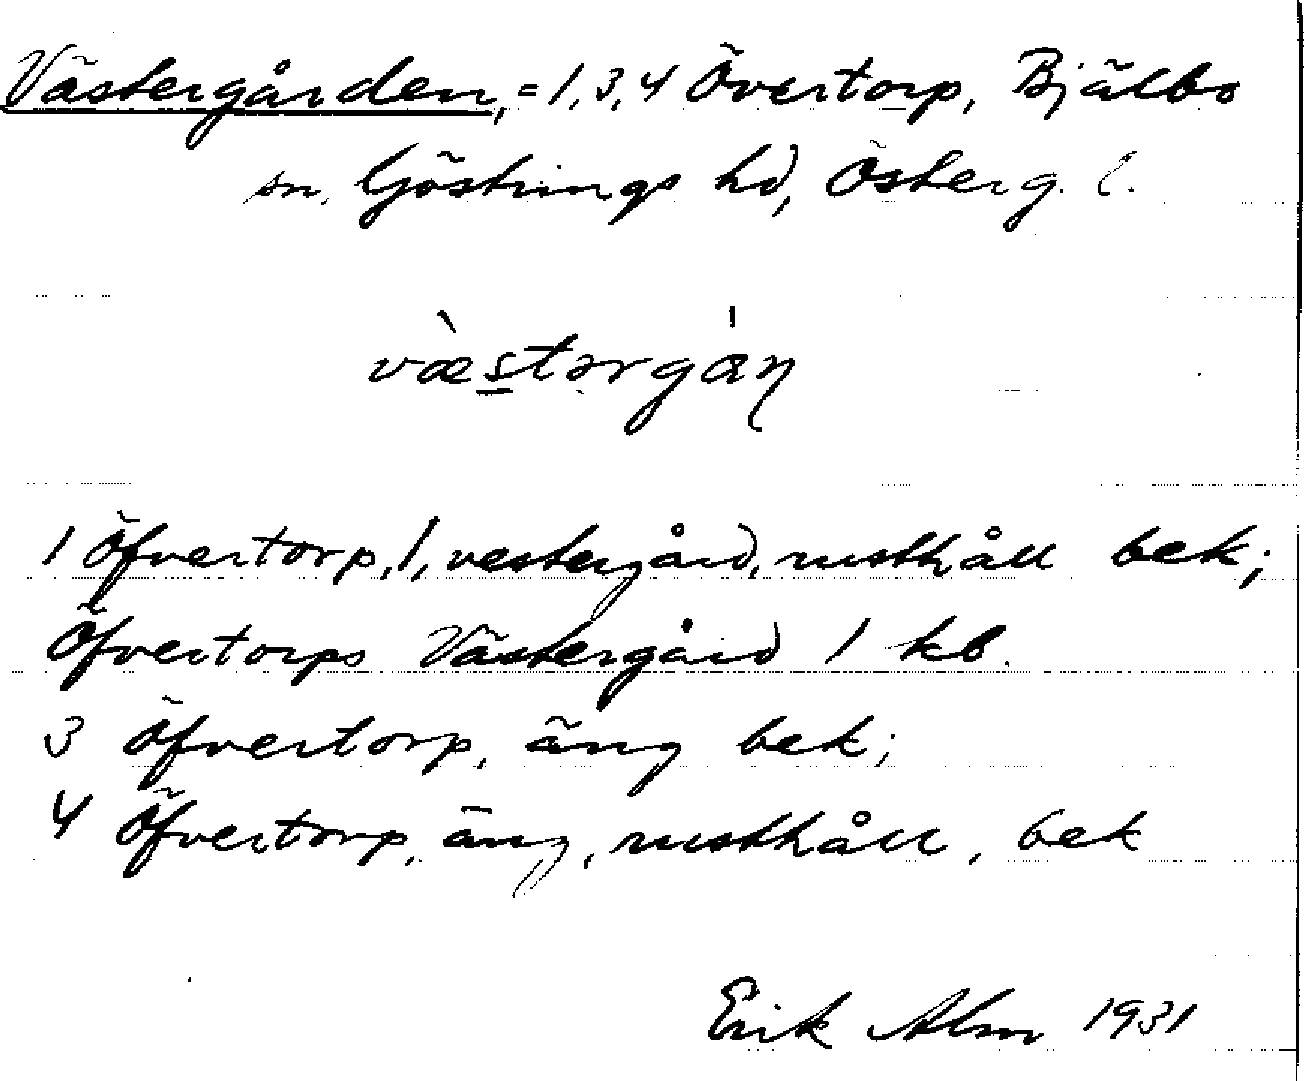 Västergården, = 1, 3, 4 Övertorp, Bjälbo
sn, Göstrings hd, Österg. l.
vὰstərgån
1 Öfvertorp, 1, vestergård, rusthåll bek;
Öfvertorps Västergård 1 kb.
3 Öfvertorp, äng bek;
4 Öfvertorp, äng, rusthåll, bek
Erik Alm 1931